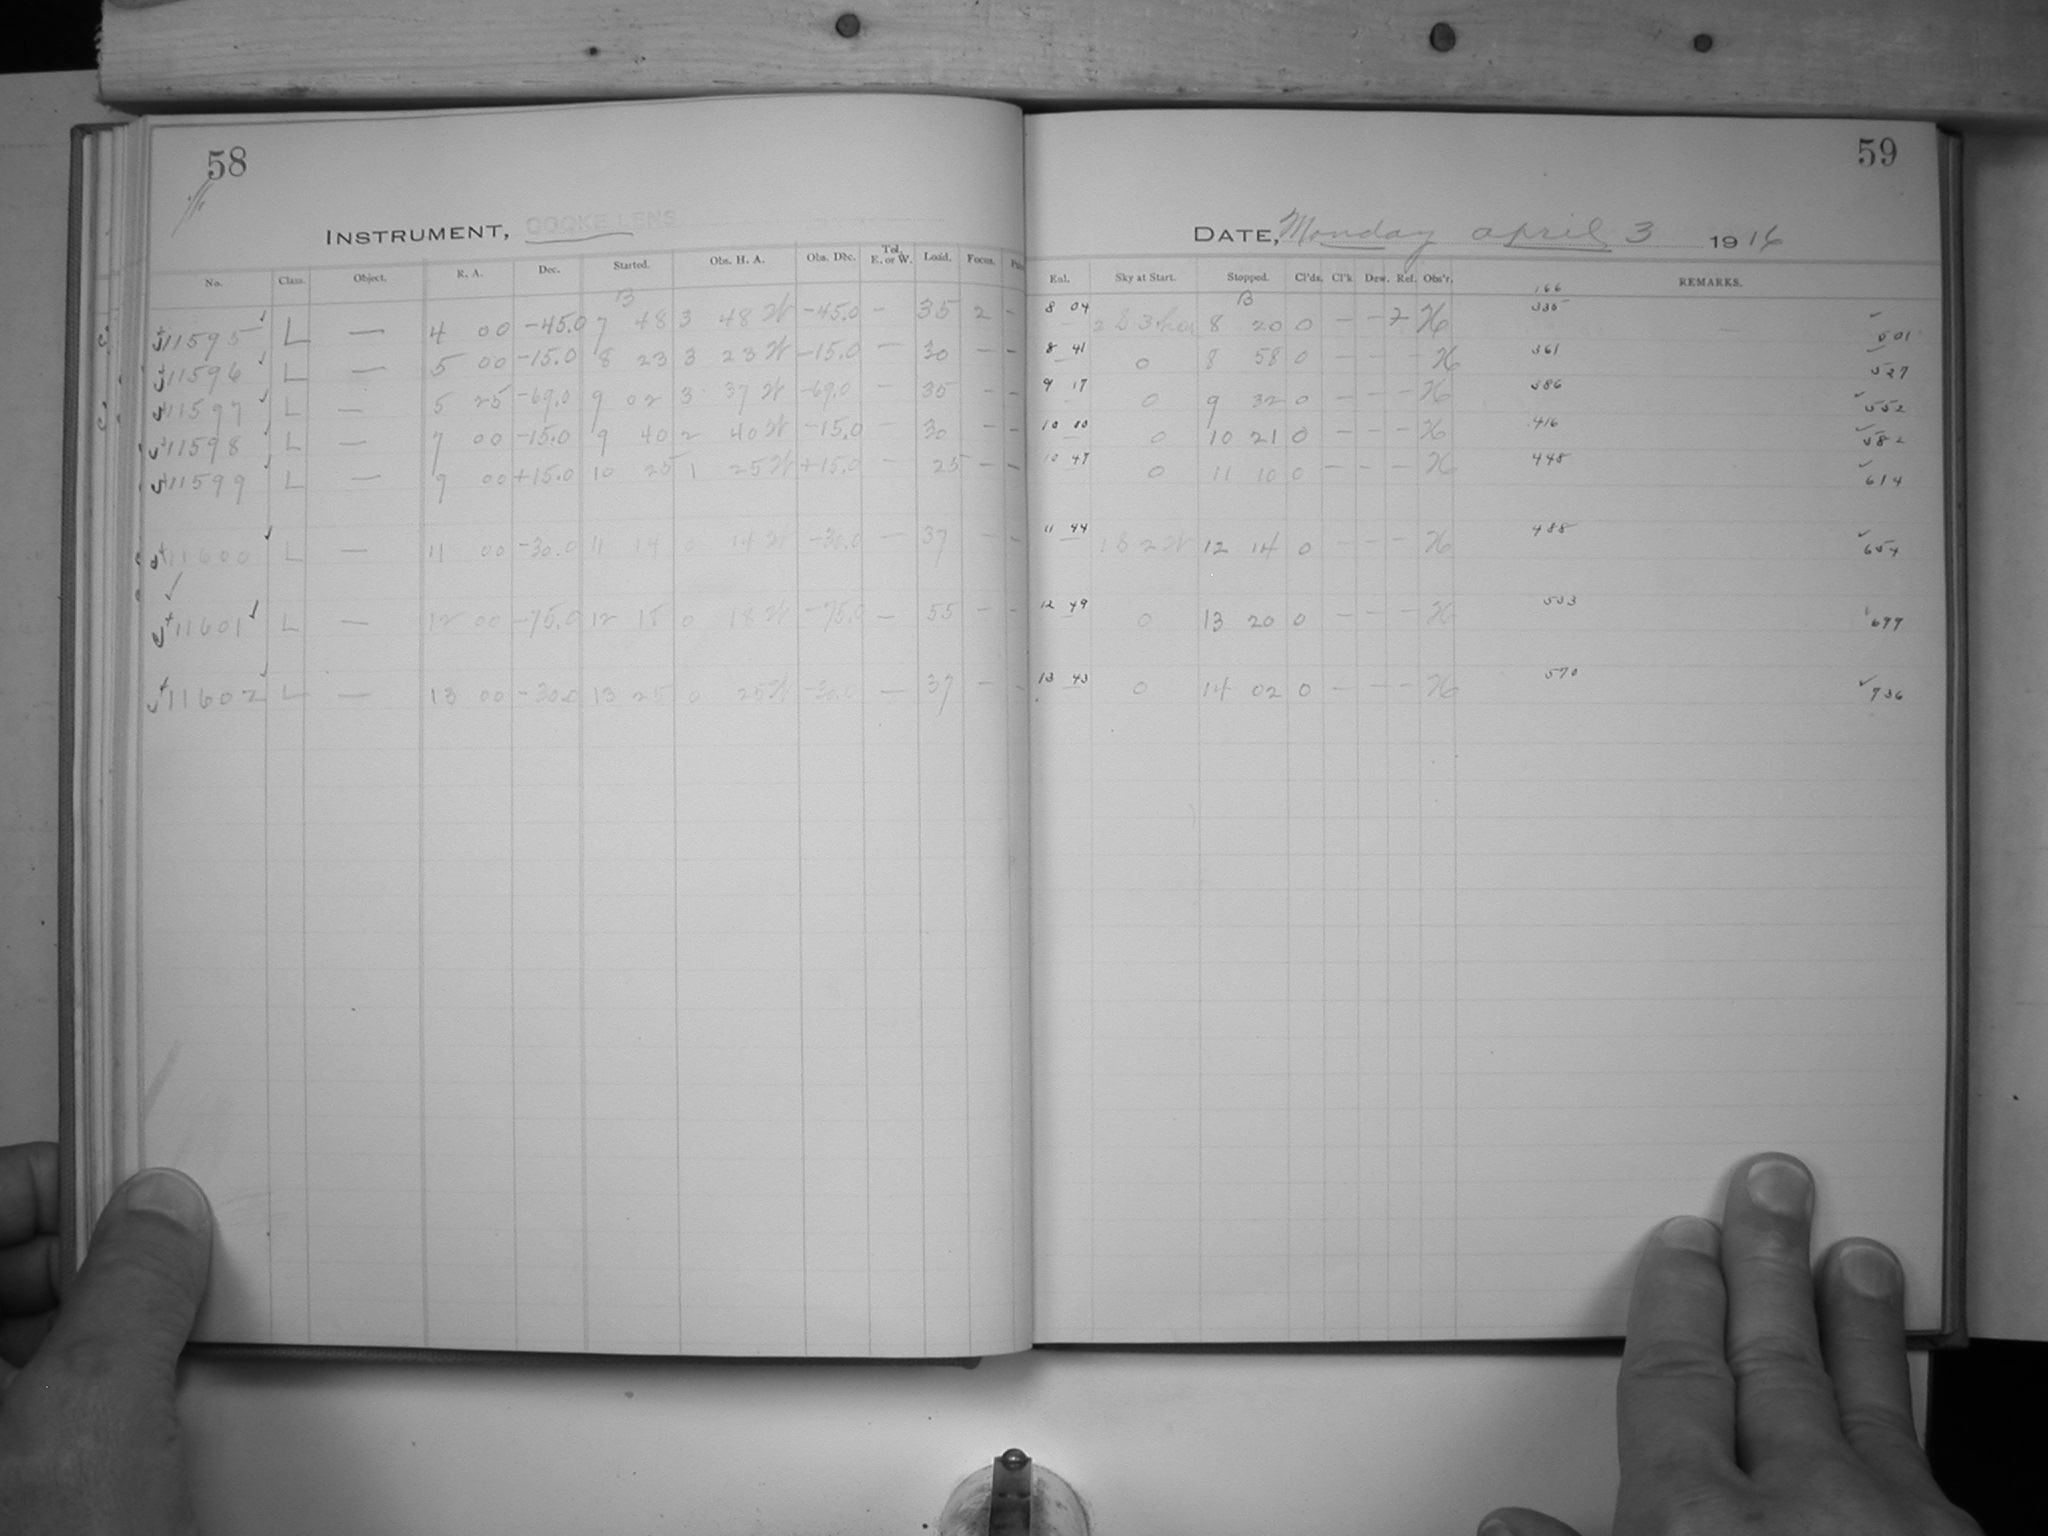 58
INSTRUMENT, COOKE LENS
No. Class. Object. R. A. Dec. Started. Obs. H. A. Obs. Dec. Tel. E. or W. Load. Focus.
B
11595 L — 4 00 -45.0 7 48 3 48 W -45.0 - 35 2 -
11596 L — 5 00 -15.0 8 23 3 23 W -15.0 - 30 - -
11597 L — 5 25 -69.0 9 02 3 37 W -69.0 - 35 - -
11598 L — 7 00 -15.0 9 40 2 40 W -15.0 - 30 - -
11599 L — 9 00 +15.0 10 25 1 25 W +15.0 - 25 - -
11600 L — 11 00 -30.0 11 14 0 14 W -30.0 - 37 - -
11601 L — 12 00 -75.0 12 18 0 18 W -75.0 - 55 - -
11602 L — 13 00 -30.0 13 25 0 25 W -30.0 - 37 - -
59
DATE, Monday april 3 1916
Eal. Sky at Start. Stopped. Cl'ds. Cl'k Dew. Rel. Obs'r. REMARKS.
B 166
8 04 8 20 0 - - 7 H 335 501
8 41 0 8 58 0 - - - H 361 527
9 17 0 9 32 0 - - - H 386 552
10 00 0 10 21 0 - - - H 416 582
10 47 0 11 10 0 - - - H 448 614
11 44 1 & 2 W 12 14 0 - - - H 488 654
12 49 0 13 20 0 - - - H 533 699
13 43 0 14 02 0 - - - H 570 736